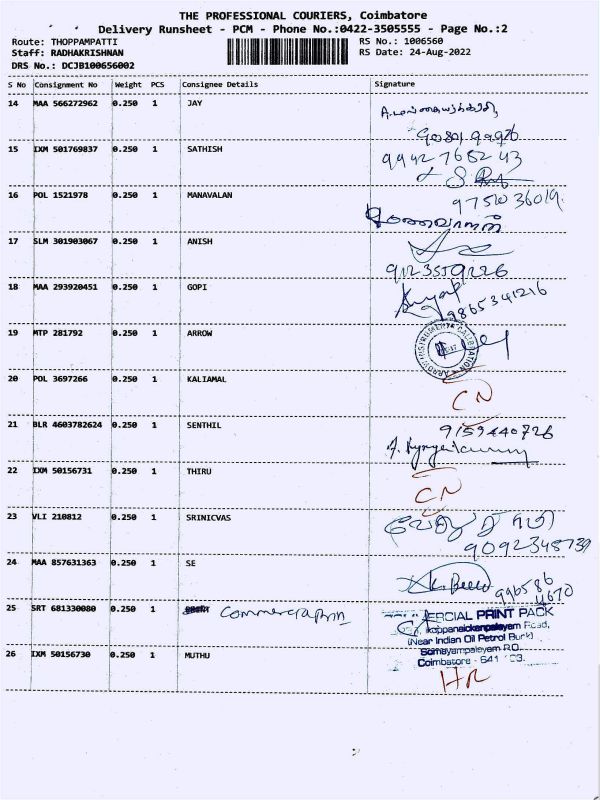 THE PROFESSIONAL COURIERS, Coimbatore
Delivery Runsheet - PCM - Phone No.:0422-3505555 - Page No.:2
Route: THOPPAMPATTI
RS No.: 1006560
Staff: RADHAKRISHNAN
RS Date: 24-Aug-2022
DRS No.: DCJB100656002
S No Consignment No Weight PCS Consignee Details Signature
14 MAA 566272962 0.250 1 JAY
15 IXM 501769837 0.250 1 SATHISH
9942765243
16 POL 1521978 0.250 1 MANAVALAN
9751036019
17 SLM 301903067 0.250 1 ANISH
9123559226
18 MAA 293920451 0.250 1 GOPI
9865341216
19 MTP 281792 0.250 1 ARROW
20 POL 3697266 0.250 1 KALIAMAL
CN
21 BLR 4603782624 0.250 1 SENTHIL
9159440726
22 IXM 50156731 0.250 1 THIRU
CN
23 VLI 210812 0.250 1 SRINICVAS
9092348739
24 MAA 857631363 0.250 1 SE
25 SRT 681330080 0.250 1
PRINT PACK
Road,
(Near Indian Oil Petrol Bunk)
Somayampalayam P.O.
Coimbatore - 641
26 IXM 50156730 0.250 1 MUTHU
HR